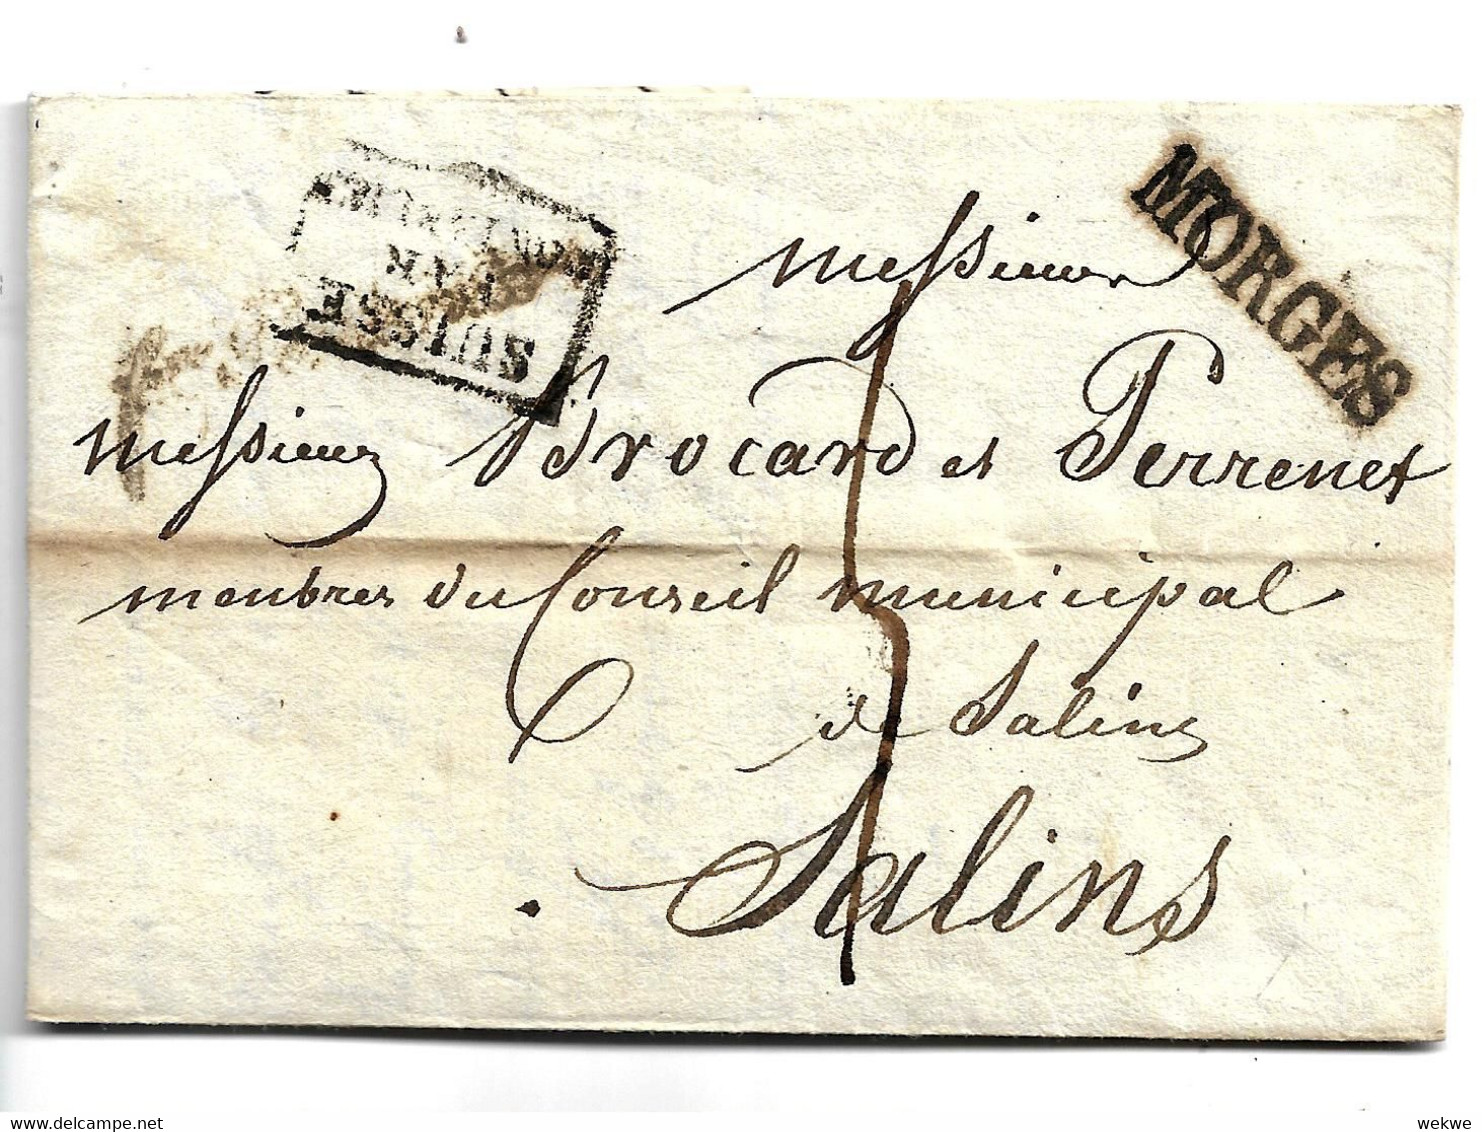 MORGES
SUISSE
PAR
Messieurs
Messieurs Brocard et Perrenet
membres du Conseil municipal
de Salins
Salins
wekwe